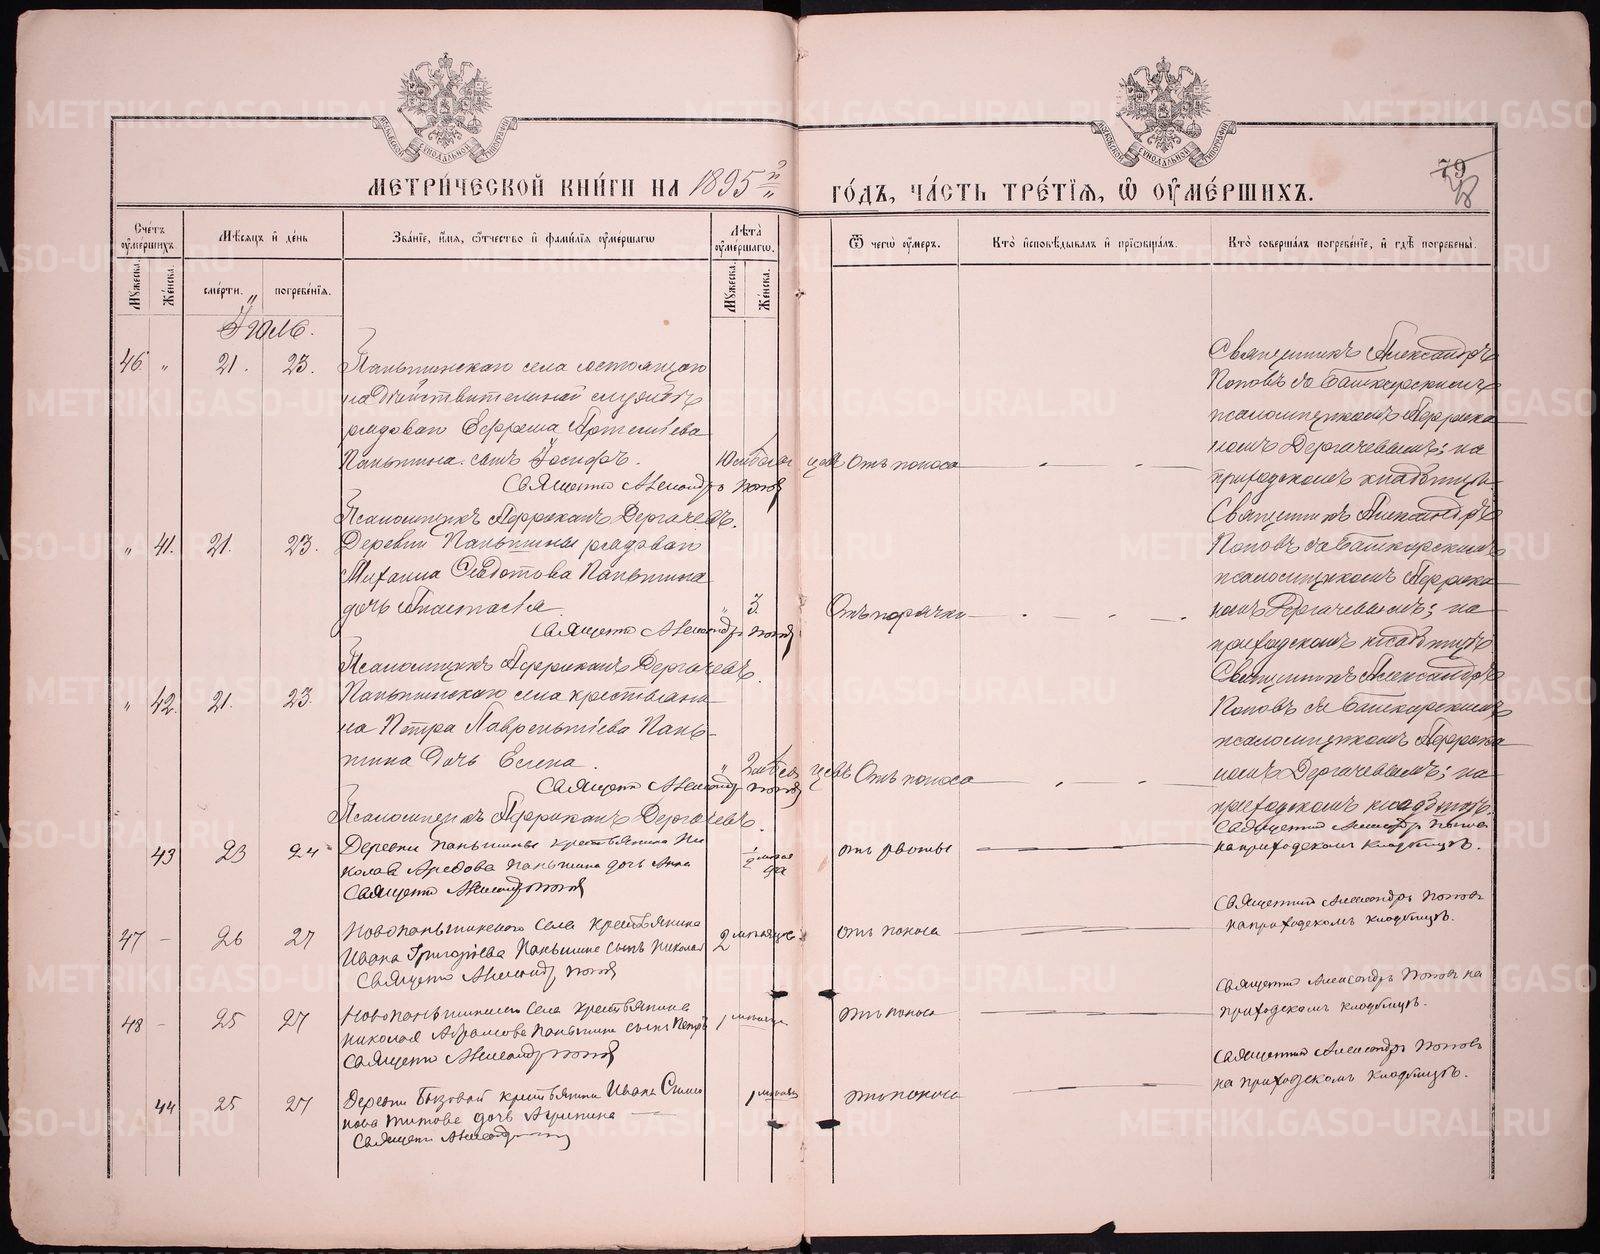 МЕТРИЧЕСКОЙ КНИГИ НА 1895 й
ГОДЪ, ЧАСТЬ ТРЕТІЯ, Ѿ ОУМЕРШИХЪ.
79
Счетъ оумершихъ
Мѣсяцъ и день
Званіе, имя, отчество и фамилія оумершаго
Лѣта оумершаго.
Ѿ чего оумеръ.
Кто исповѣдывалъ и пріобщалъ.
Кто совершалъ погребеніе, и гдѣ погребены.
Мужеска.
Женска.
смерти.
погребенія.
Мужеска.
Женска.
Іюль.
46 „ 21. 23. Паньшинскаго села состоящаго
на дѣйствительной службѣ
рядоваго Ефрема Артемьева
Паньшина сынъ Іосифъ.
10 мѣсяцевъ Отъ поноса
Священникъ Александръ
Поповъ съ Башкирскимъ
псаломщикомъ Африка
номъ Дергачевымъ; на
приходскомъ кладбищѣ
Священникъ Александръ Поповъ
Псаломщикъ Африканъ Дергачевъ.
„ 41. 21. 23. Деревни Паньшины рядоваго
Михаила Ѳедотова Паньшина
дочь Анастасія
„ 3 Отъ горячки
Священникъ Александръ
Поповъ съ Башкирскимъ
псаломщикомъ Африка
номъ Дергачевымъ; на
приходскомъ кладбищѣ
Священникъ Александръ Поповъ
Псаломщикъ Африканъ Дергачевъ.
„ 42. 21. 23. Паньшинскаго села крестьяни
на Петра Лаврентьева Пань-
шина дочь Елена.
„ 2 мѣсяцевъ Отъ поноса
Священникъ Александръ
Поповъ съ Башкирскимъ
псаломщикомъ Африка
номъ Дергачевымъ; на
приходскомъ кладбищѣ.
Священникъ Александръ Поповъ
Псаломщикъ Африканъ Дергачевъ.
43 23 24 Деревни Паньшины крестьянина Ни
колая Паньшина дочь Анна
Священникъ Александръ Поповъ
1/2 года
отъ рвоты
Священникъ Александръ Поповъ
на приходскомъ кладбищѣ.
47 – 26 27 Новопаньшинскаго села крестьянина
Ивана Григорьева Паньшина сынъ Николай
Священникъ Александръ Поповъ
2 мѣсяцевъ
отъ поноса
Священникъ Александръ Поповъ
на приходскомъ кладбищѣ.
48 – 25 27 Новопаньшинскаго села крестьянина
Николая Абрамова Паньшина сынъ Петръ
Священникъ Александръ Поповъ
1 мѣсяца
отъ поноса
Священникъ Александръ Поповъ на
приходскомъ кладбищѣ.
44 25 27 Деревни Бызовой крестьянина Ивана Симо
нова Титова дочь Агрипина
Священникъ Александръ
1 мѣсяца
отъ поноса
Священникъ Александръ Поповъ
на приходскомъ кладбищѣ.
METRIKI.GASO-URAL.RU